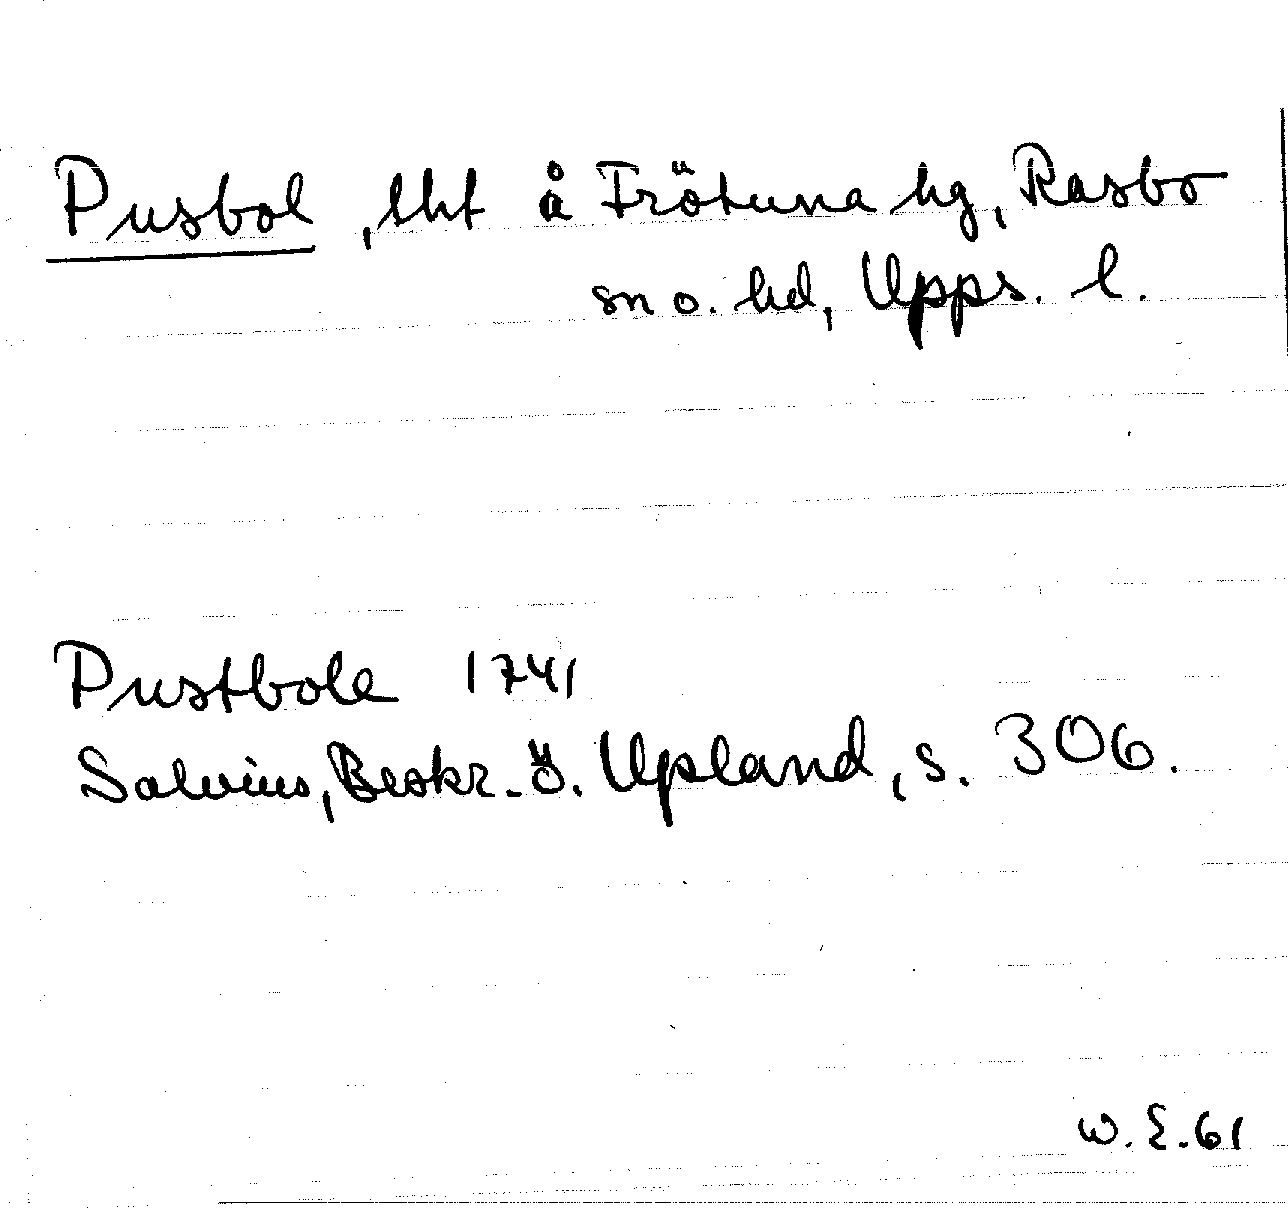 Pusbol, lht å Frötuna hg, Rasbo
sn o. hd, Upps. l.
Pustbole 1741
Salvius, Beskr. ö. Upland, s. 306.
W. E. 61